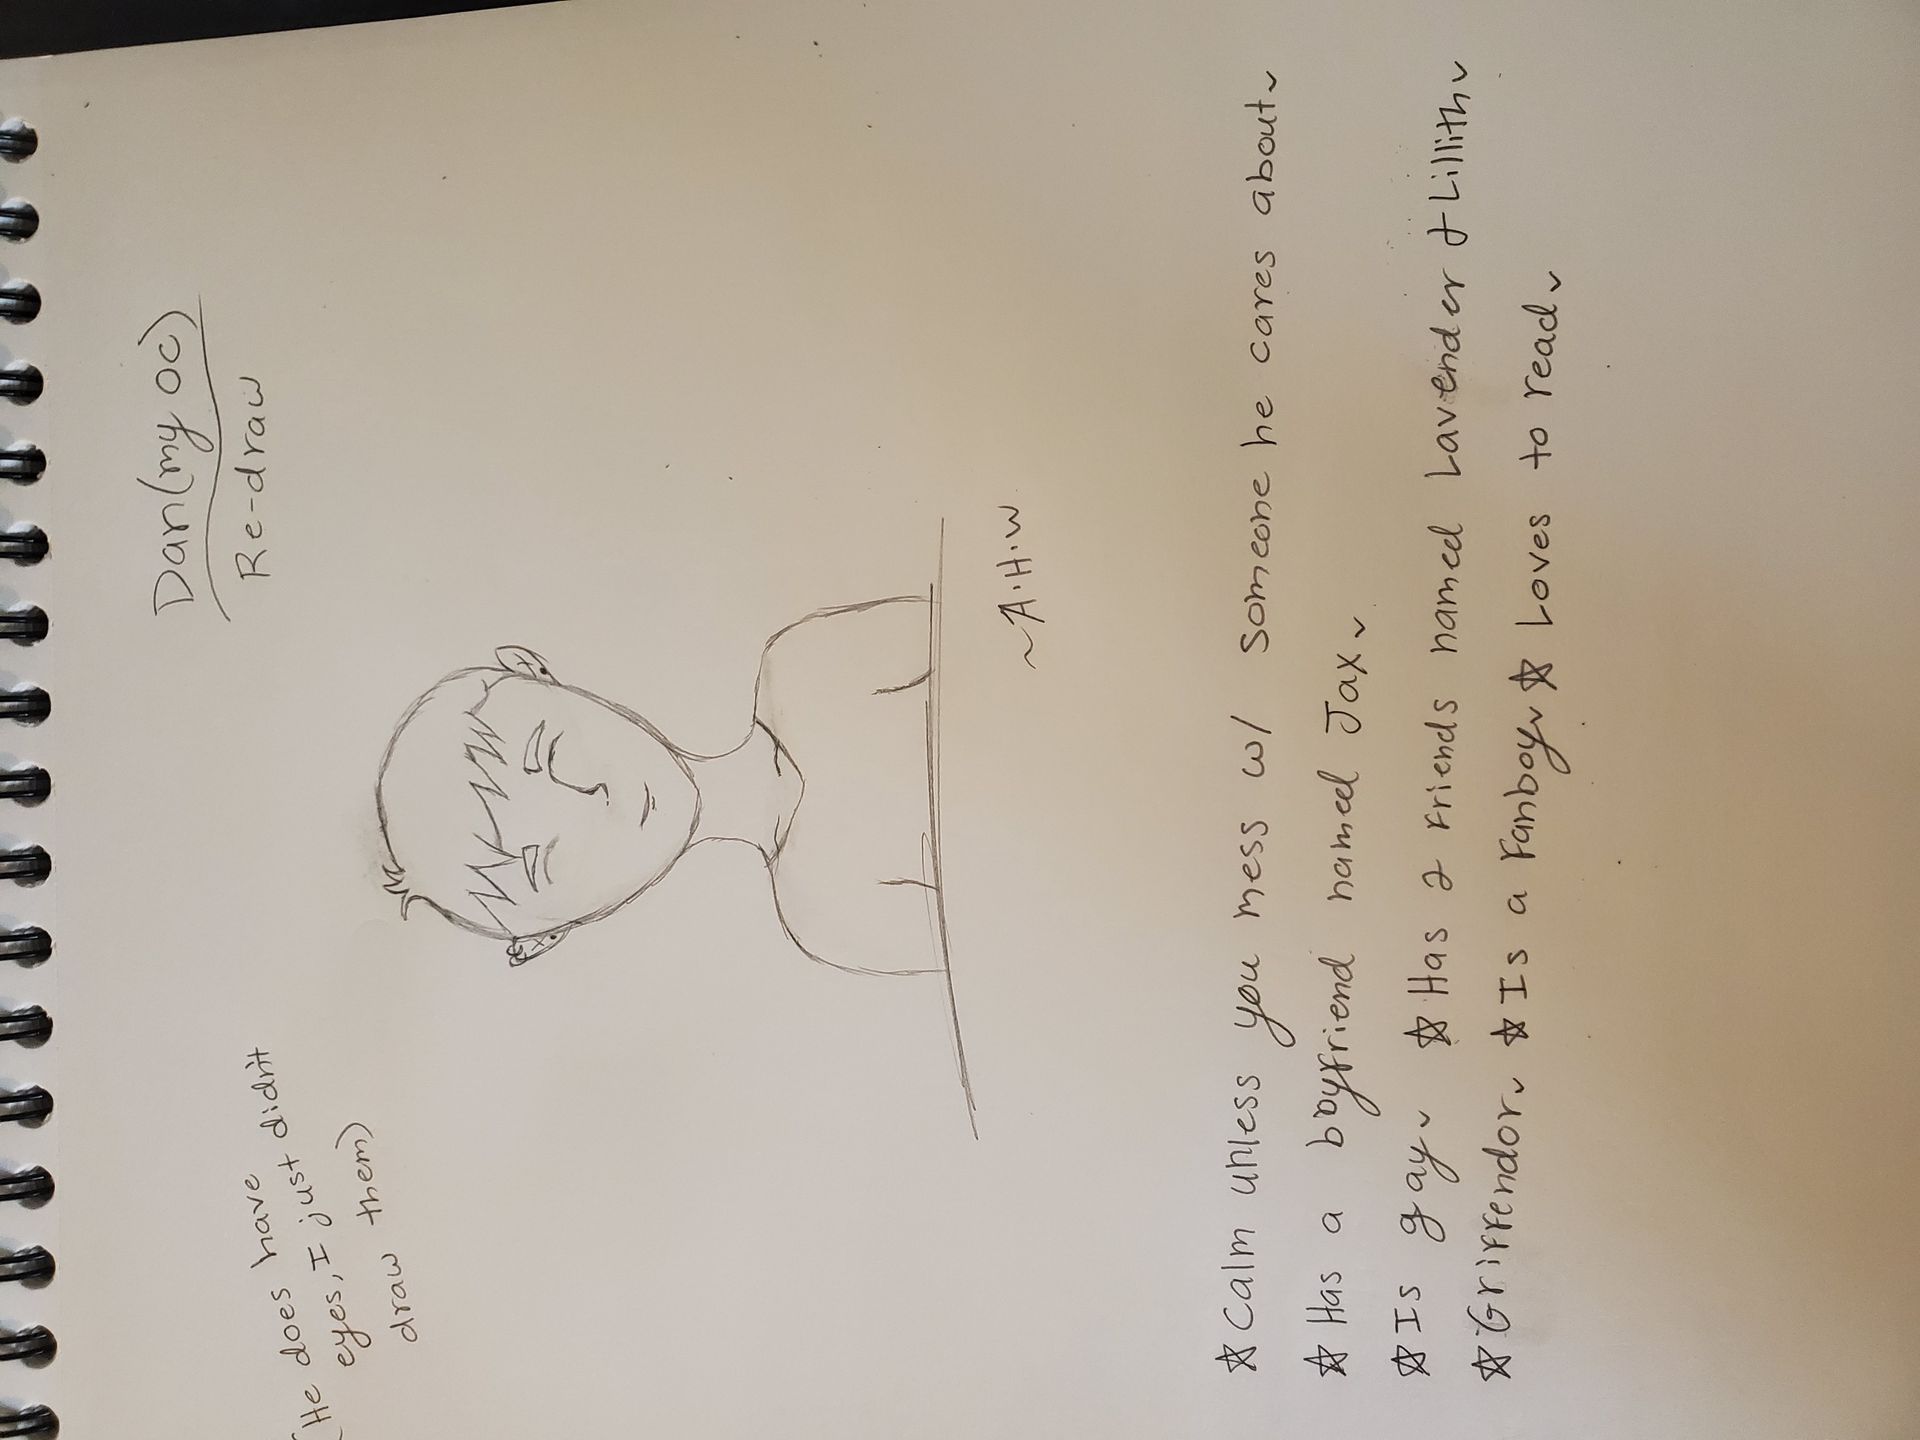 Dan(my oc)
Re-draw
(He does have
eyes, I just didn't
draw them)
~A.H.W
☆ Calm unless you mess w/ someone he cares about~
☆ Has a boyfriend named Jax~
☆ Is gay~ ☆ Has 2 friends named Lavender & Lillith~
☆ Griffendor~ ☆ Is a fanboy~ ☆ Loves to read~